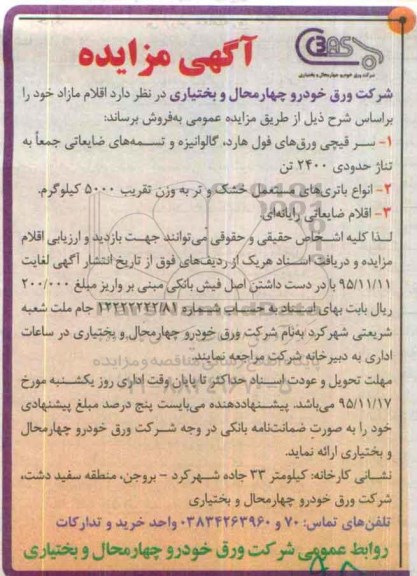 آگهی مزایده
شرکت ورق خودرو چهارمحال و بختیاری
شرکت ورق خودرو چهارمحال و بختیاری در نظر دارد اقلام مازاد خود را
براساس شرح ذیل از طریق مزایده عمومی به‌فروش برساند:
۱- سر قیچی ورق‌های فول هارد، گالوانیزه و تسمه‌های ضایعاتی جمعاً به
تناژ حدودی ۲۴۰۰ تن
۲- انواع باتری‌های مستعمل خشک و تر به وزن تقریب ۵۰۰۰ کیلوگرم.
۳- اقلام ضایعاتی رایانه‌ای
لذا کلیه اشخاص حقیقی و حقوقی می‌توانند جهت بازدید و ارزیابی اقلام
مزایده و دریافت اسناد هریک از ردیف‌های فوق از تاریخ انتشار آگهی لغایت
۹۵/۱۱/۱۱ با در دست داشتن اصل فیش بانکی مبنی بر واریز مبلغ ۲۰۰/۰۰۰
ریال بابت بهای اسناد به حساب شماره جام ملت شعبه
شریعتی شهرکرد به‌نام شرکت ورق خودرو چهارمحال و بختیاری در ساعات
اداری به دبیرخانه شرکت مراجعه نمایند.
مهلت تحویل و عودت اسناد حداکثر تا پایان وقت اداری روز یکشنبه مورخ
۹۵/۱۱/۱۷ می‌باشد. پیشنهاددهنده می‌بایست پنج درصد مبلغ پیشنهادی
خود را به صورت ضمانت‌نامه بانکی در وجه شرکت ورق خودرو چهارمحال
و بختیاری ارائه نماید.
نشانی کارخانه: کیلومتر ۳۳ جاده شهرکرد - بروجن، منطقه سفید دشت،
شرکت ورق خودرو چهارمحال و بختیاری
تلفن‌های تماس: ۷۰ و ۰۳۸۳۴۲۶۳۹۶۰ واحد خرید و تدارکات
روابط عمومی شرکت ورق خودرو چهارمحال و بختیاری